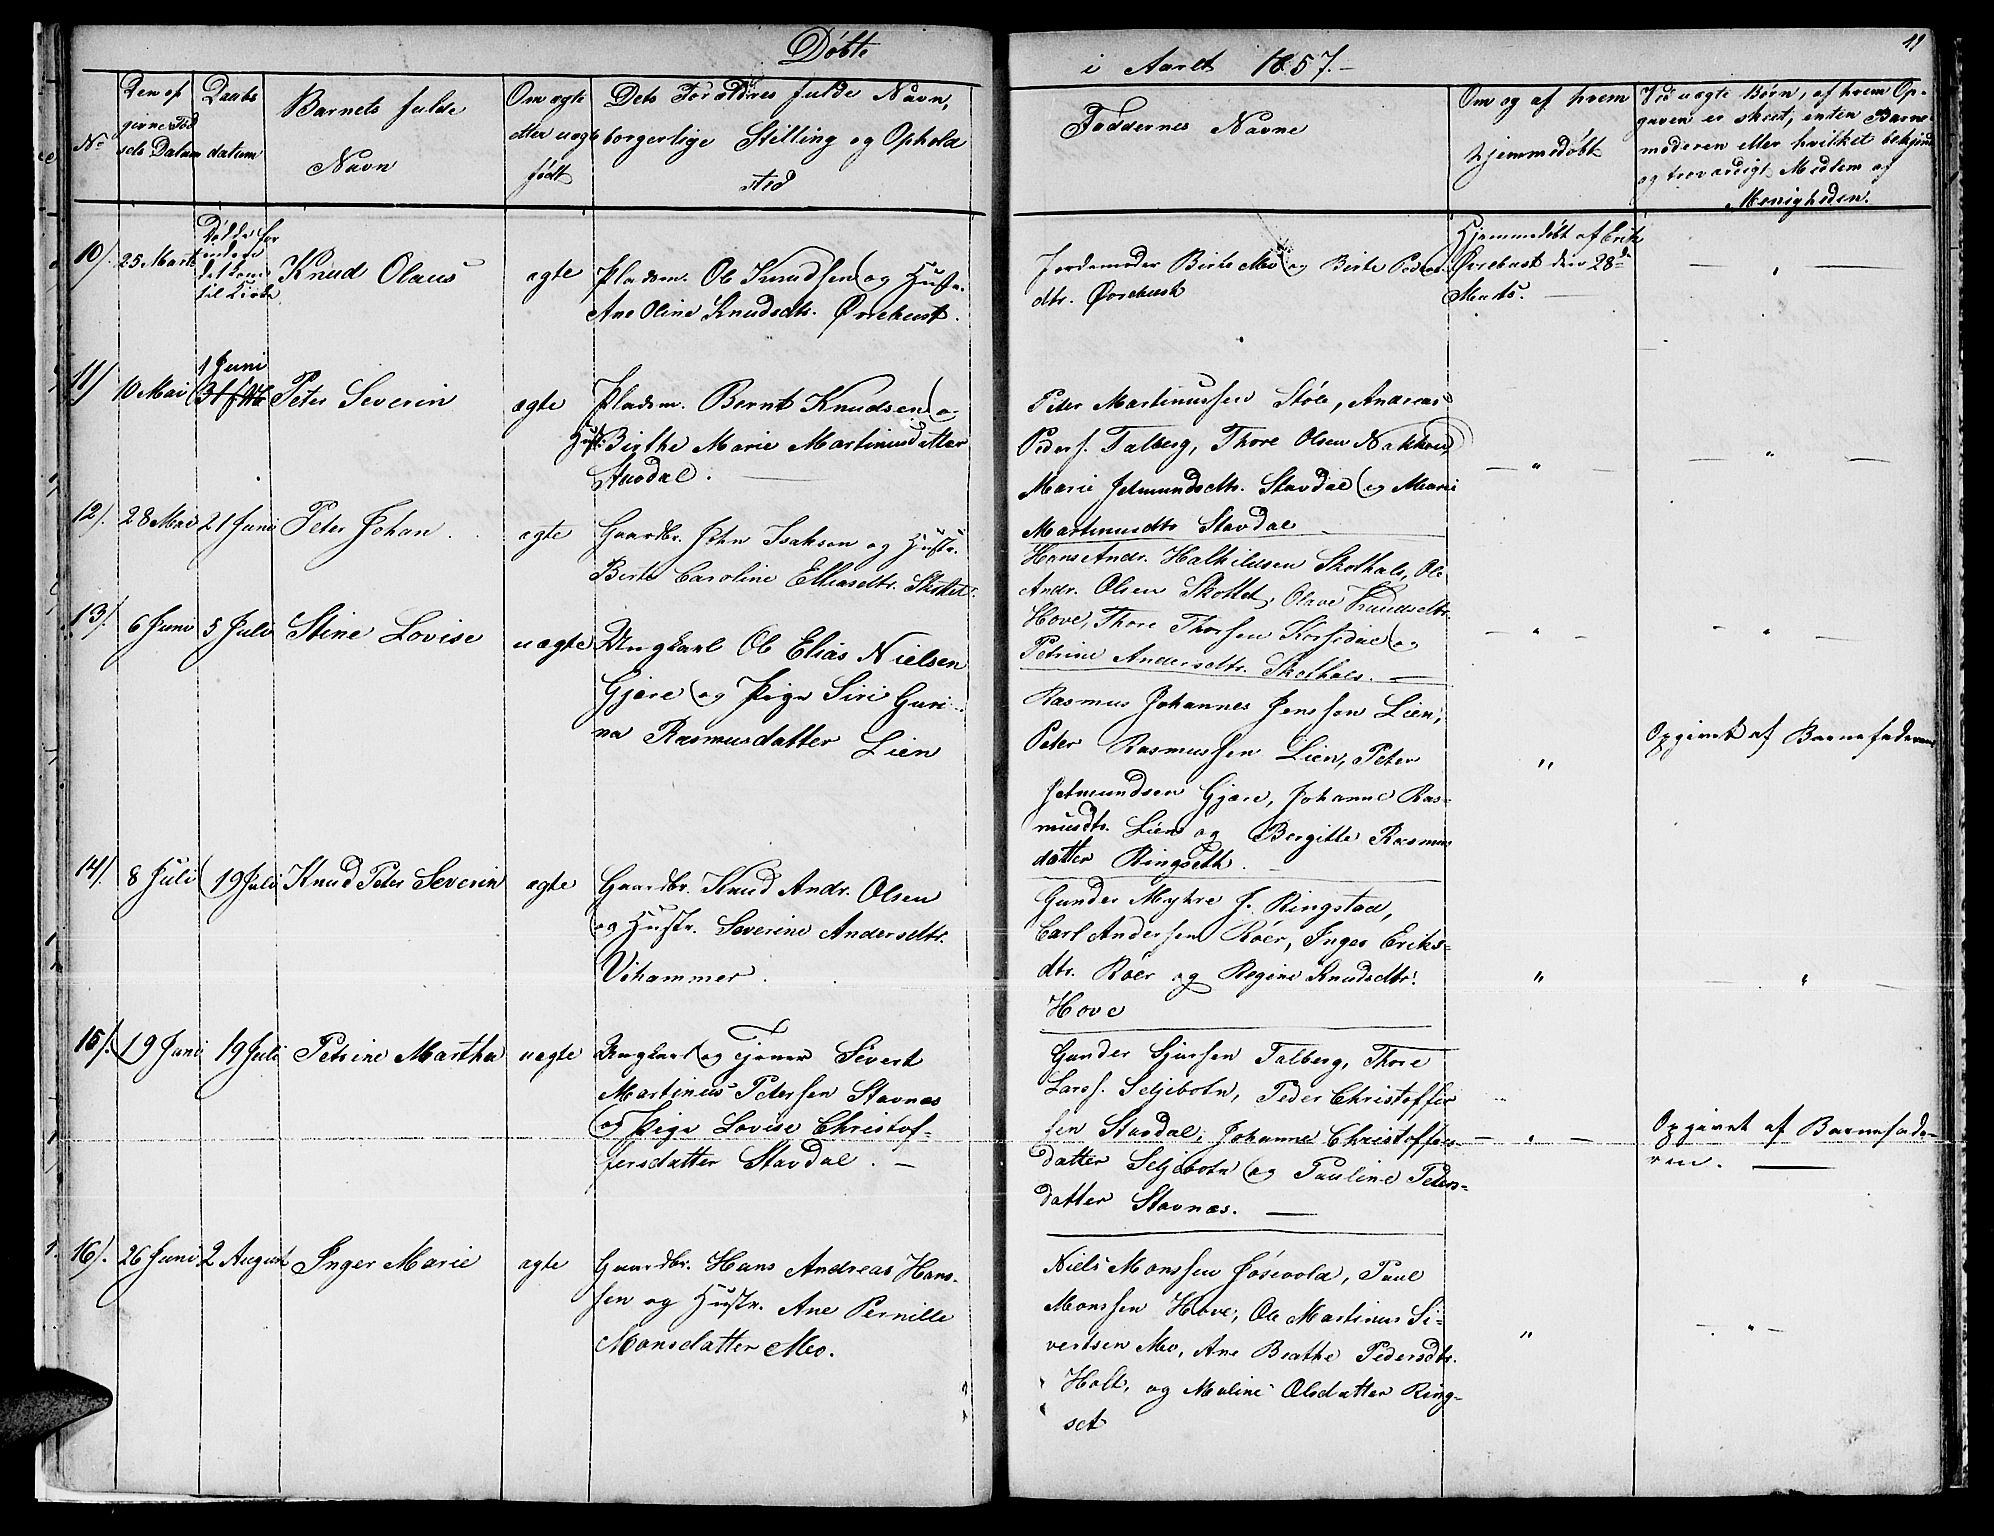 Døbte
i Aaret 1857.
11
No
Den op
givne Fød
sels Datum
Daabs
datum
Barnets fulde
Navn
Om ægte
eller uægte
født
Dets Forældres fulde Navn,
borgerlige Stilling og Opholds
sted
Faddernes Navne
Om og af hvem
hjemmedøbt
Ved uægte Børn, af hvem Op-
gaven er skeet, enten Barne-
moderen eller hvilket bekjendt
og troværdigt Medlem af
Menigheden.
10/.
25 Marts
Døde før
endnu
det kom
til Kirke
Knud Olaus
ægte
Pladsm. Ole Knudsen og Hustr.
Ane Oline Knudsdtr. Ørebust.
Jordemoder Birte Mo og Birte Peders-
dtr. Ørebust
Hjemmedøbt af Erik
Ørebust den 28de
Marts.
— " —
11/
10 Mai
1 Juni
Peter Severin
ægte
Pladsm. Bernt Knudsen og
Hustr. Birthe Marie Martinusdatter
Stavdal.
Peter Martinussen Støle, Andreas
Peders. Talberg, Thore Olsen Nakken
Marie Jetmundsdtr. Stavdal og Marie
Martinusdtr Stavdal
— " —
— " —
12/.
28 Mai
21 Juni
Peter Johan
ægte
Gaardbr. John Isaksen og Hustr.
Birte Caroline Eliasdtr. Skottet.
Hans Andr. Halkildsen Skothals, Ole
Andr. Olsen Skottet, Olave Knudsdtr.
Hove, Thore Thorsen Korsdal og
Petrine Andersdtr. Skothals.
— " —
— " —
13/.
6 Juni
5 Juli
Stine Lovise
uægte
Ungkarl Ole Elias Nielsen
Gjære og Pige Siri Guri-
na Rasmusdatter Lien
Rasmus Johannes Jenssen Lien,
Peter Rasmussen Lien, Peter
Jetmundsen Gjære, Johanne Ras-
musdtr. Lien og Bergitte Rasmus
datter Ringseth.
"
Opgivet af Barnefaderen
14/.
8 Juli
19 Juli
Knud Peter Severin
ægte
Gaardbr. Knud Andr. Olsen
og Hustr. Severine Andersdtr.
Vihammer.
Gunder Myhre f. Ringstad,
Carl Andersen Röer, Inger Eriks-
dtr. Röer og Regine Knudsdtr.
Hove
"
— " —
15/.
19 Juni
19 Juli
Petrine Martha
uægte
Ungkarl og Tjener Sivert
Martinus Petersen Stavnæs
og Pige Lovise Christof-
fersdatter Stavdal. —
Gunder Sjursen Talberg, Thore
Larss. Seljebotn, Peder Christoffer
sen Stavdal, Johanne Christoffers-
datter Seljebotn og Pauline Peters-
datter Stavnæs. —
— " —
Opgivet af Barnefade-
ren. —
16/.
26 Juni
2 August
Inger Marie
ægte
Gaardbr. Hans Andreas Hans-
sen og Hustr. Ane Pernille
Monsdatter Mo.
Niels Monssen Josevold, Paul
Monssen Hove, Ole Martinus Si-
vertsen Mo, Ane Beathe Pedersdtr.
Holt, og Maline Olsdatter Ring-
set
"
— " —